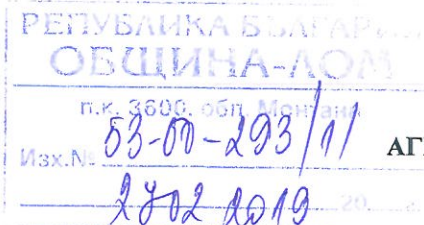 РЕПУБЛИКА БЪЛГАРИЯ
ОБЩИНА-ЛОМ
п.к. 3600, обл. Монтана
Изх.№ 53-00-293/11 АГ
27.02 2019 20